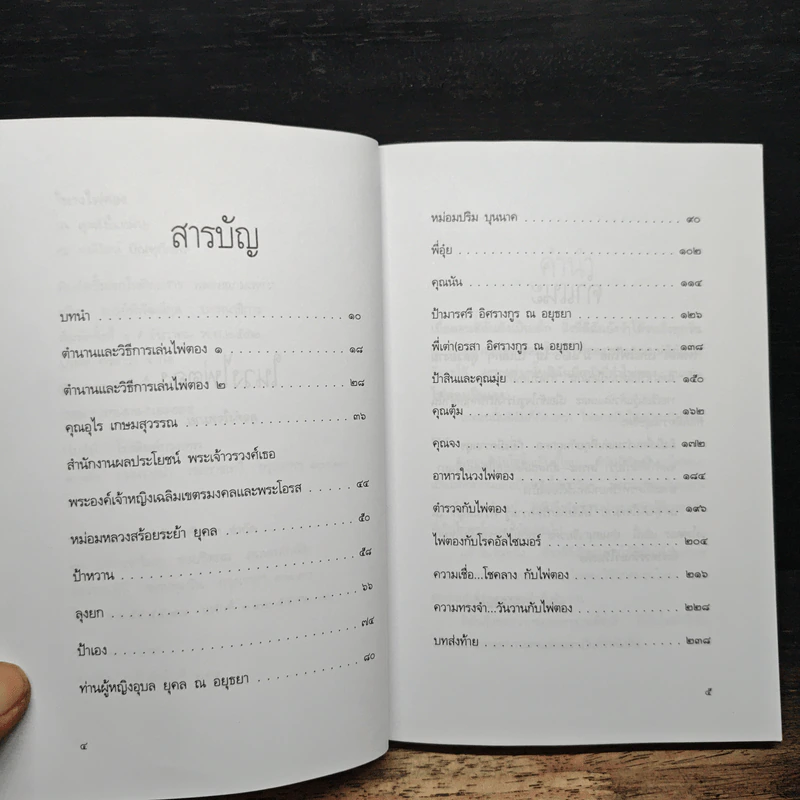 สารบัญ
บทนำ ................................ ๑๐
ตำนานและวิธีการเล่นไพ่ตอง ๑ ................ ๑๘
ตำนานและวิธีการเล่นไพ่ตอง ๒ ................ ๒๘
คุณอุไร เกษมสุวรรณ ...................... ๓๖
สำนักงานผลประโยชน์ พระเจ้าวรวงศ์เธอ
พระองค์เจ้าหญิงเฉลิมเขตรมงคลและพระโอรส ...... ๔๔
หม่อมหลวงสร้อยระย้า ยุคล .................. ๕๐
ป้าหวาน .............................. ๕๘
ลุงยก ................................ ๖๖
ป้าเอง ............................... ๗๔
ท่านผู้หญิงอุบล ยุคล ณ อยุธยา .............. ๘๐
๔
หม่อมปริม บุนนาค ....................... ๙๐
พี่อุ๋ย ............................... ๑๐๒
คุณนัน .............................. ๑๑๔
ป้ามารศรี อิศรางกูร ณ อยุธยา .............. ๑๒๖
พี่เต่า(อรสา อิศรางกูร ณ อยุธยา) ............ ๑๓๘
ป้าสินและคุณมุ่ย ........................ ๑๕๐
คุณตุ้ม .............................. ๑๖๒
คุณจง ............................... ๑๗๒
อาหารในวงไพ่ตอง ....................... ๑๘๔
ตำรวจกับไพ่ตอง ........................ ๑๙๖
ไพ่ตองกับโรคอัลไซเมอร์ ................... ๒๐๔
ความเชื่อ...โชคลาง กับไพ่ตอง ............... ๒๑๖
ความทรงจำ...วันวานกับไพ่ตอง .............. ๒๒๘
บทส่งท้าย ............................ ๒๓๘
๕